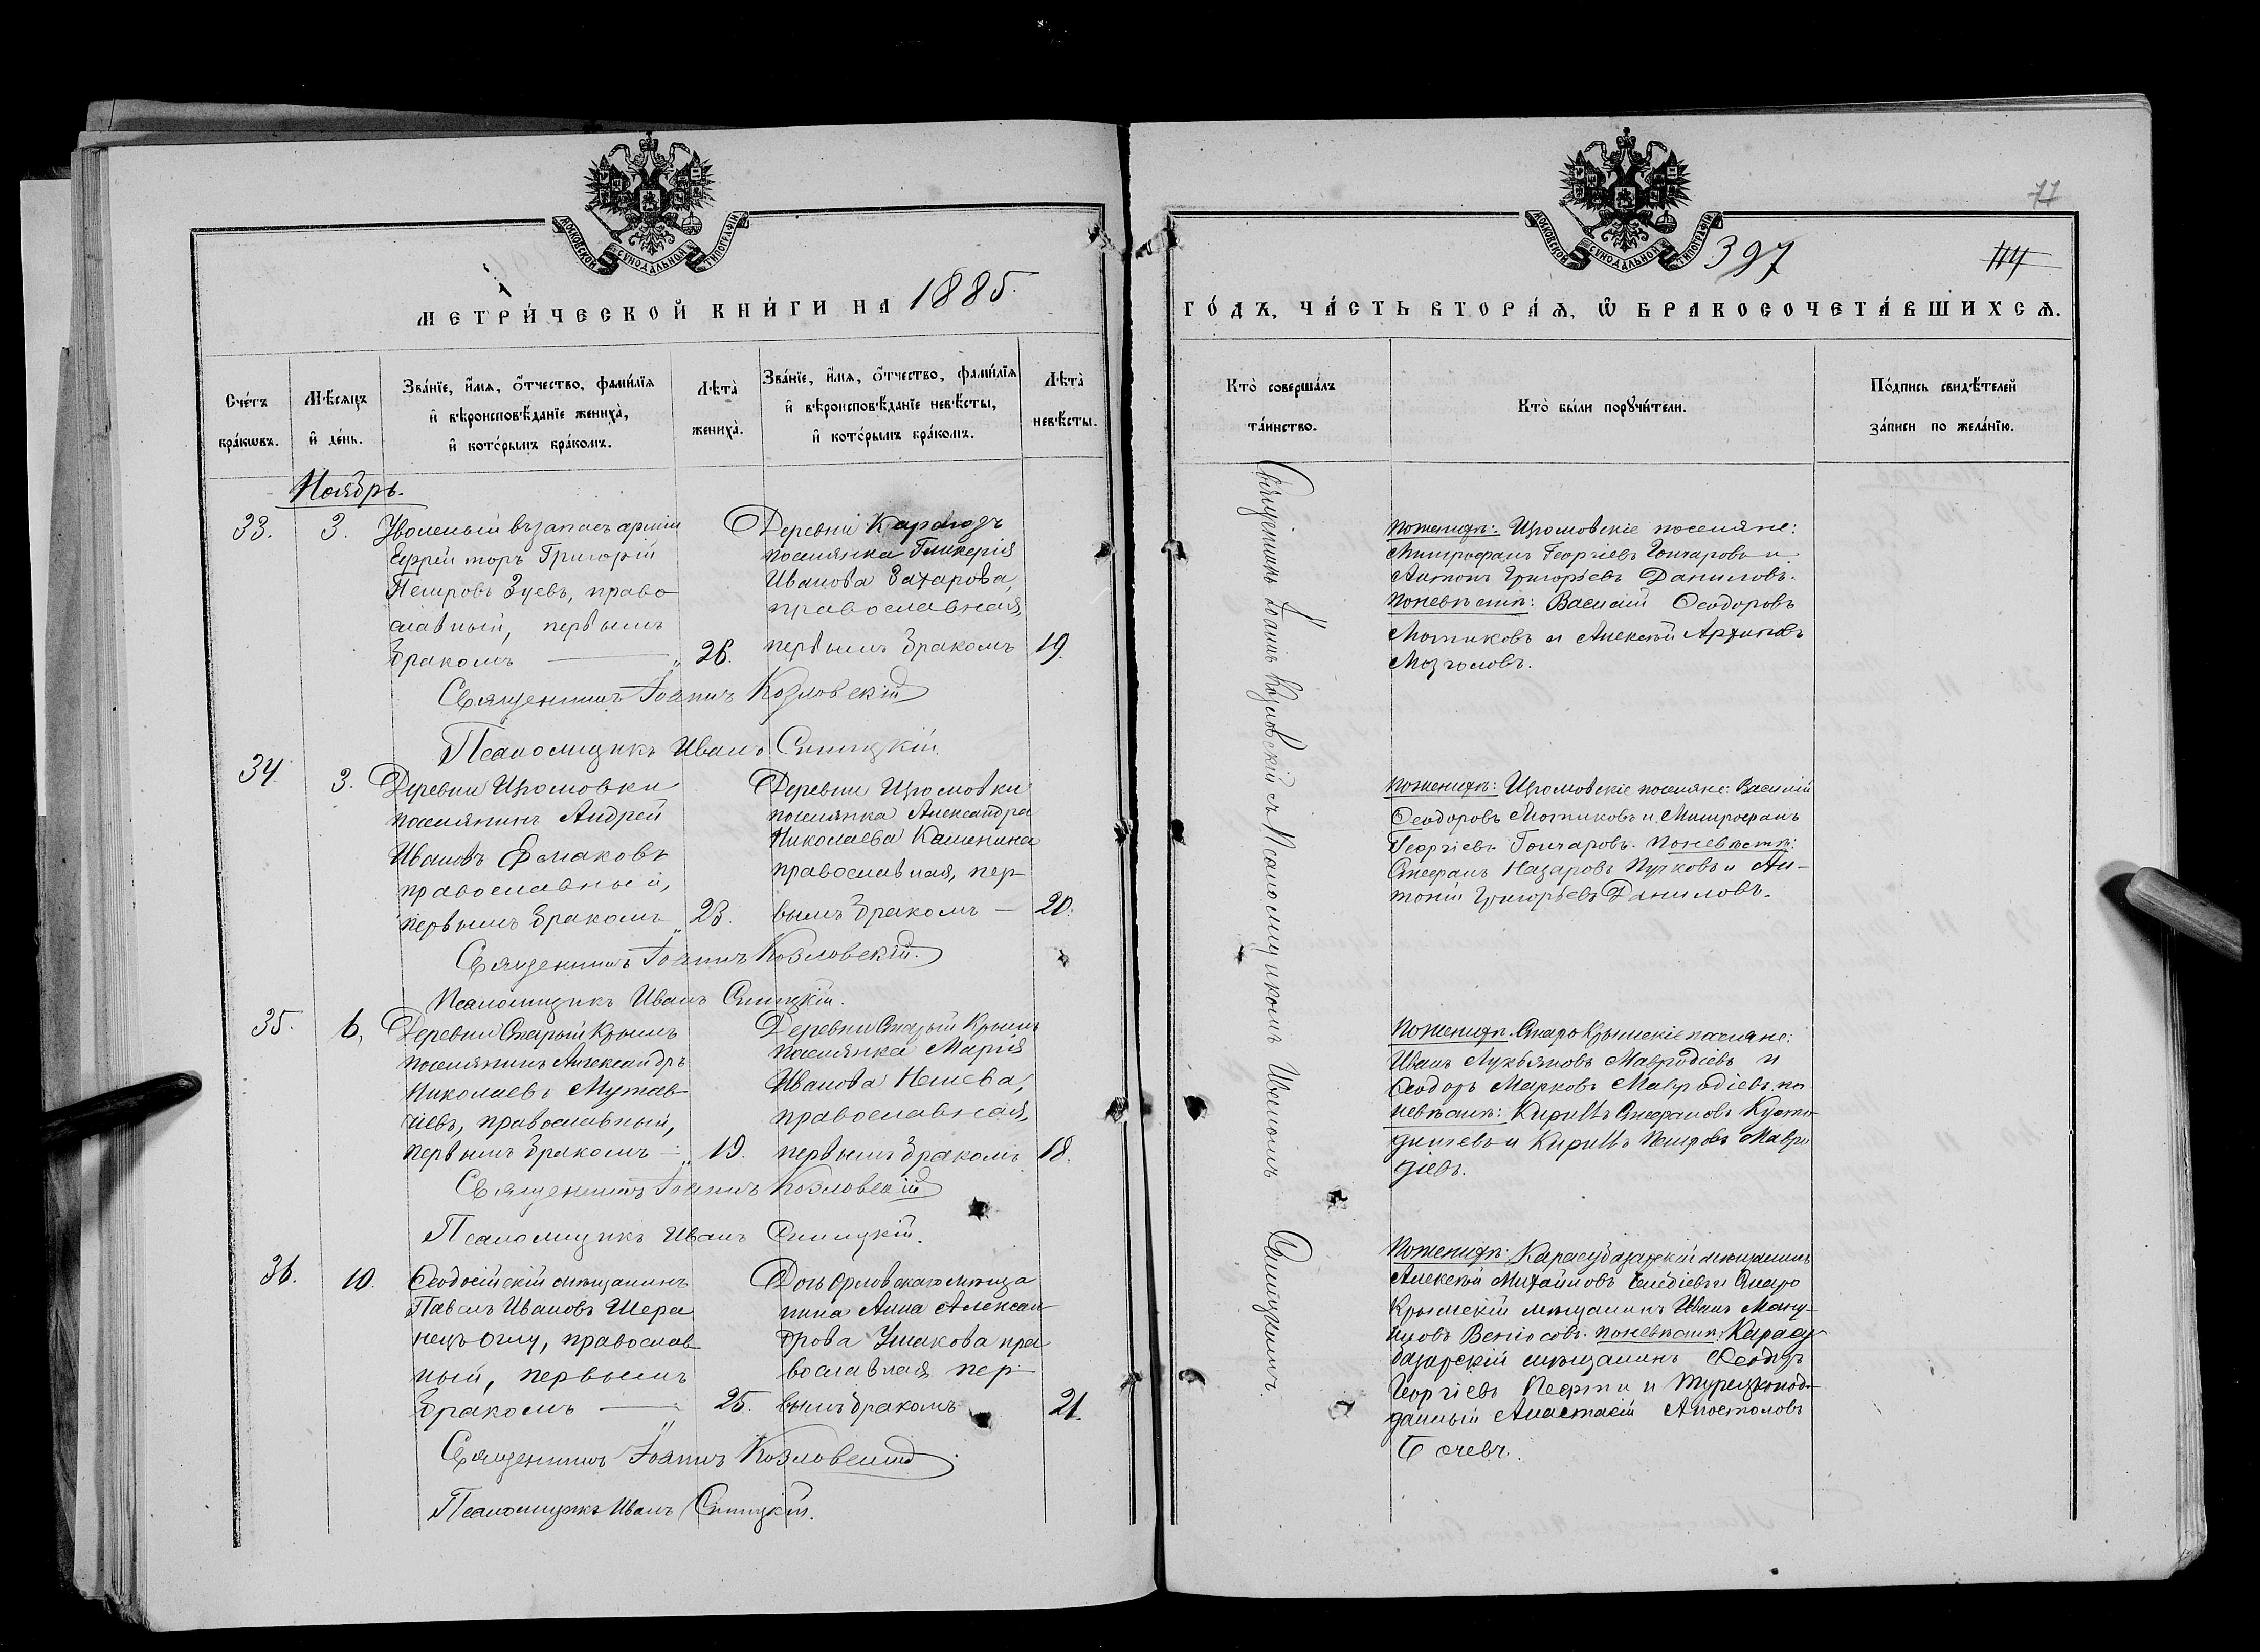 МОСКОВСКОЙ СѴНОДАЛЬНОЙ ТИПОГРАФІИ
МЕТРИ́ЧЕСКОЙ КНИ́ГИ НА 1885.
Сче́тъ бра́кѡвъ.
Мѣ́сяцъ и҆ де́нь.
Зва́нїе, и҆́мѧ, ѻ҆́тчество, фами́лїѧ
и҆ вѣроисповѣ́данїе жениха̀,
и҆ кото́рымъ бра́комъ.
Лѣта̀
жениха̀.
Зва́нїе, и҆́мѧ, ѻ҆́тчество, фами́лїѧ
и҆ вѣроисповѣ́данїе невѣ́сты,
и҆ кото́рымъ бра́комъ.
Лѣта̀
невѣ́сты.
Ноябрь.
33. 3.
Уволеный въ запасъ арміи
Ефрейторъ Григорій
Петровъ Зуевъ, право
славный, первымъ
бракомъ — „ 26.
Деревни Карагозъ
поселянка Гликерія
Иванова Захарова,
православная,
первымъ бракомъ 19.
Священникъ Іоаннъ Козловскій
Псаломщикъ Иванъ Синицкій.
34 3.
Деревни Изюмовки
поселянинъ Андрей
Ивановъ Ермаковъ
православный,
первымъ бракомъ „ 23.
Деревни Изюмовки
поселянка Александра
Николаева Калинина
православная, пер
вымъ бракомъ — 20.
Священникъ Іоаннъ Козловскій.
Псаломщикъ Иванъ Синицкій.
35. 6,
Деревни Старый Крымъ
поселянинъ Александръ
Николаевъ Мутав
чіевъ, православный,
первымъ бракомъ — „ 19.
Деревни Старый Крымъ
поселянка Марія
Иванова Нешева,
православная,
первымъ бракомъ 18.
Священникъ Іоаннъ Козловскій
Псаломщикъ Иванъ Синицкій.
36. 10.
Ѳеодосійскій мѣщанинъ
Павелъ Ивановъ Шера
нецъ Оглу, православ
ный, первымъ
бракомъ — „ 25.
Дочь Орловскаго мѣща
нина Анна Алексан
дрова Ушакова пра
вославная, пер
вымъ бракомъ 21.
Священникъ Іоаннъ Козловскій
Псаломщикъ Иванъ Синицкій.
77
МОСКОВСКОЙ СѴНОДАЛЬНОЙ ТИПОГРАФІИ
397
ГО́ДЪ, ЧА́СТЬ ВТОРА́Ѧ, Ѡ҆ БРАКОСОЧЕТА́ВШИХСѦ.
Кто̀ соверша́лъ
та́инство.
Кто̀ бы́ли порꙋчи́тели.
По́дпись свидѣ́телей
за́писи по жела́нїю.
Священникъ Іоаннъ Козловскій съ Псаломщикомъ Иваномъ Синицкимъ.
По женихѣ: Изюмовскіе поселяне:
Митрофанъ Георгіевъ Гончаровъ и
Антонъ Григорьевъ Даниловъ.
По невѣстѣ: Василій Ѳеодоровъ
Мотиковъ и Алексѣй Архиповъ
Мозголовъ.
По женихѣ: Изюмовскіе поселяне: Василій
Ѳеодоровъ Мотиковъ и Митрофанъ
Георгіевъ Гончаровъ. По невѣстѣ:
Стефанъ Назаровъ Пучковъ и Ан-
тоній Григорьевъ Даниловъ.
По женихѣ. Старокрымскіе поселяне:
Иванъ Лукьяновъ Мавродіевъ и
Ѳеодоръ Марковъ Мавродіевъ, по
невѣстѣ: Кириллъ Стефановъ
и Кириллъ Петровъ Мавро
діевъ.
По женихѣ: Карасубазарскій мѣщанинъ
Алексѣй Михайловъ и Старо
Крымскій мѣщанинъ Иванъ
По невѣстѣ: Карасу
базарскій мѣщанинъ Ѳеодоръ
Георгіевъ и Турецкопод-
данный Анастасій Апостоловъ
Бочевъ.